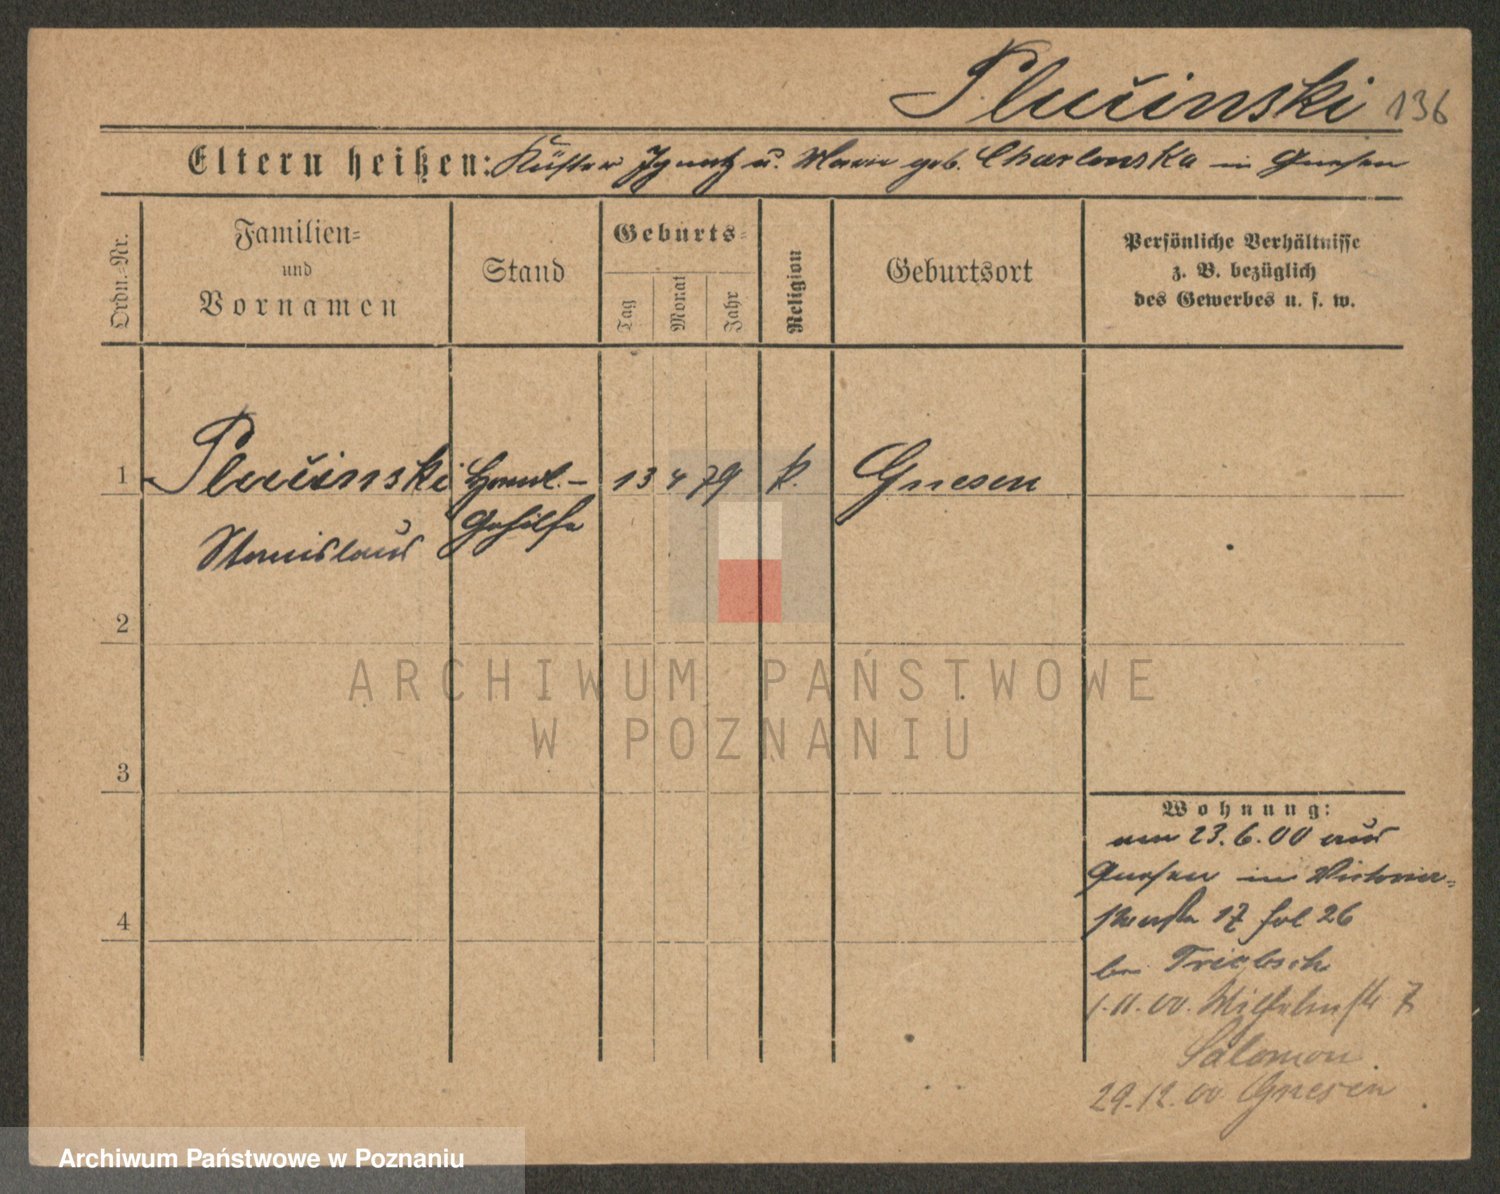 Plucinski 136
Eltern heißen: Küster Ignatz u. Marie geb. Charlonska in Gnesen
Ordn.-Nr.
Familien-
und
Vornamen
Stand
Geburts-
Tag
Monat
Jahr
Religion
Geburtsort
Persönliche Verhältnisse
z. B. bezüglich
des Gewerbes u. s. w.
1 Plucinski Handl.- 13 4 79 k. Gnesen
Stanislaus Gehilfe
2
ARCHIWUM PAŃSTWOWE
W POZNANIU
3
Wohnung:
am 23.6.00 aus
Gnesen in Victoria-
strasse 17 fol 26
4
bei Triebsch
1.11.00. Wilhelmstr 7
Salomon.
29.12.00 Gnesen
Archiwum Państwowe w Poznaniu